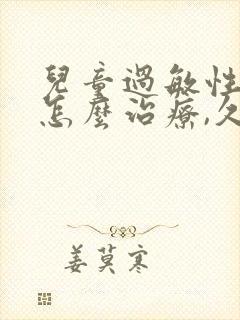 兒童過敏性
怎麼治療,久
姜莫寒